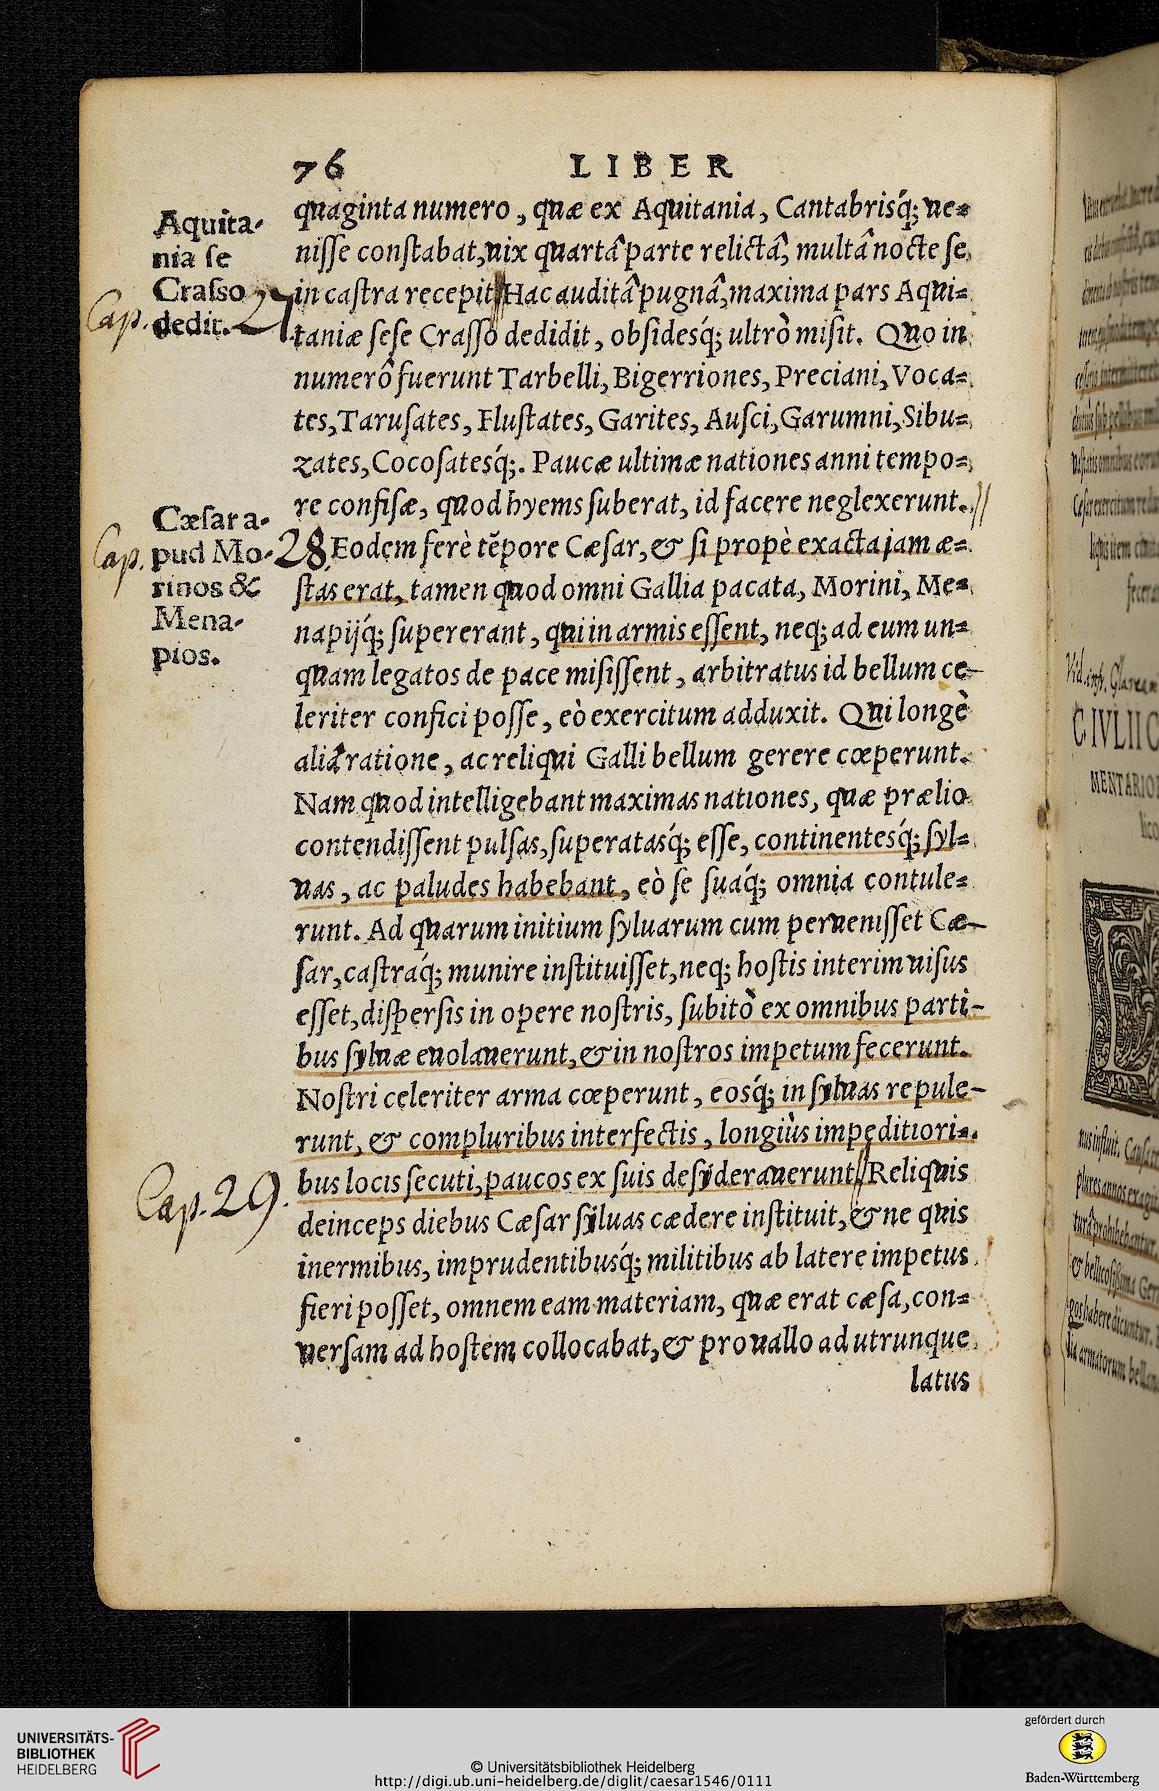 76 LIBER
Aquita-
nia se
Crasso
dedit.
Cap. 27.
quaginta numero, quæ ex Aquitania, Cantabrisq́; ue-
nisse constabat, uix quartâ parte relictâ, multâ nocte se
in castra recepit Hac auditâ pugnâ, maxima pars Aqui-
taniæ sese Crasso dedidit, obsidesq́; ultrò misit. Quo in
numerô fuerunt Tarbelli, Bigerriones, Preciani, Voca-
tes, Tarusates, Flustates, Garites, Ausci, Garumni, Sibu-
zates, Cocosatesq́;. Paucæ ultimæ nationes anni tempo-
re confisæ, quod hyems suberat, id facere neglexerunt.
Cæsar a-
pud Mo-
rinos &
Mena-
pios.
Cap. 28.
Eodem ferè tẽpore Cæsar, & si propè exacta jam æ-
stas erat, tamen quod omni Gallia pacata, Morini, Me-
napijq́; supererant, qui in armis essent, neq; ad eum un-
quam legatos de pace misissent, arbitratus id bellum ce-
leriter confici posse, eò exercitum adduxit. Qui longè
aliâ ratione, ac reliqui Galli bellum gerere cœperunt.
Nam quod intelligebant maximas nationes, quæ prælio
contendissent pulsas, superatasq́; esse, continentesq́; syl-
uas, ac paludes habebant, eò se suaq́; omnia contule-
runt. Ad quarum initium syluarum cum peruenisset Cæ-
sar, castraq́; munire instituisset, neq; hostis interim uisus
esset, dispersis in opere nostris, subitò ex omnibus parti-
bus syluæ euolauerunt, & in nostros impetum fecerunt.
Nostri celeriter arma cœperunt, eosq́; in syluas repule-
runt, & compluribus interfectis, longiùs impeditiori-
bus locis secuti, paucos ex suis desyderauerunt Reliquis
Cap. 29.
deinceps diebus Cæsar syluas cædere instituit, & ne quis
inermibus, imprudentibusq́; militibus ab latere impetus
fieri posset, omnem eam materiam, quæ erat cæsa, con-
uersam ad hostem collocabat, & pro uallo ad utrunque
latus
C. IVLII C
MENTARIO
UNIVERSITÄTS-
BIBLIOTHEK
HEIDELBERG
© Universitätsbibliothek Heidelberg
http://digi.ub.uni-heidelberg.de/diglit/caesar1546/0111
gefördert durch
Baden-Württemberg